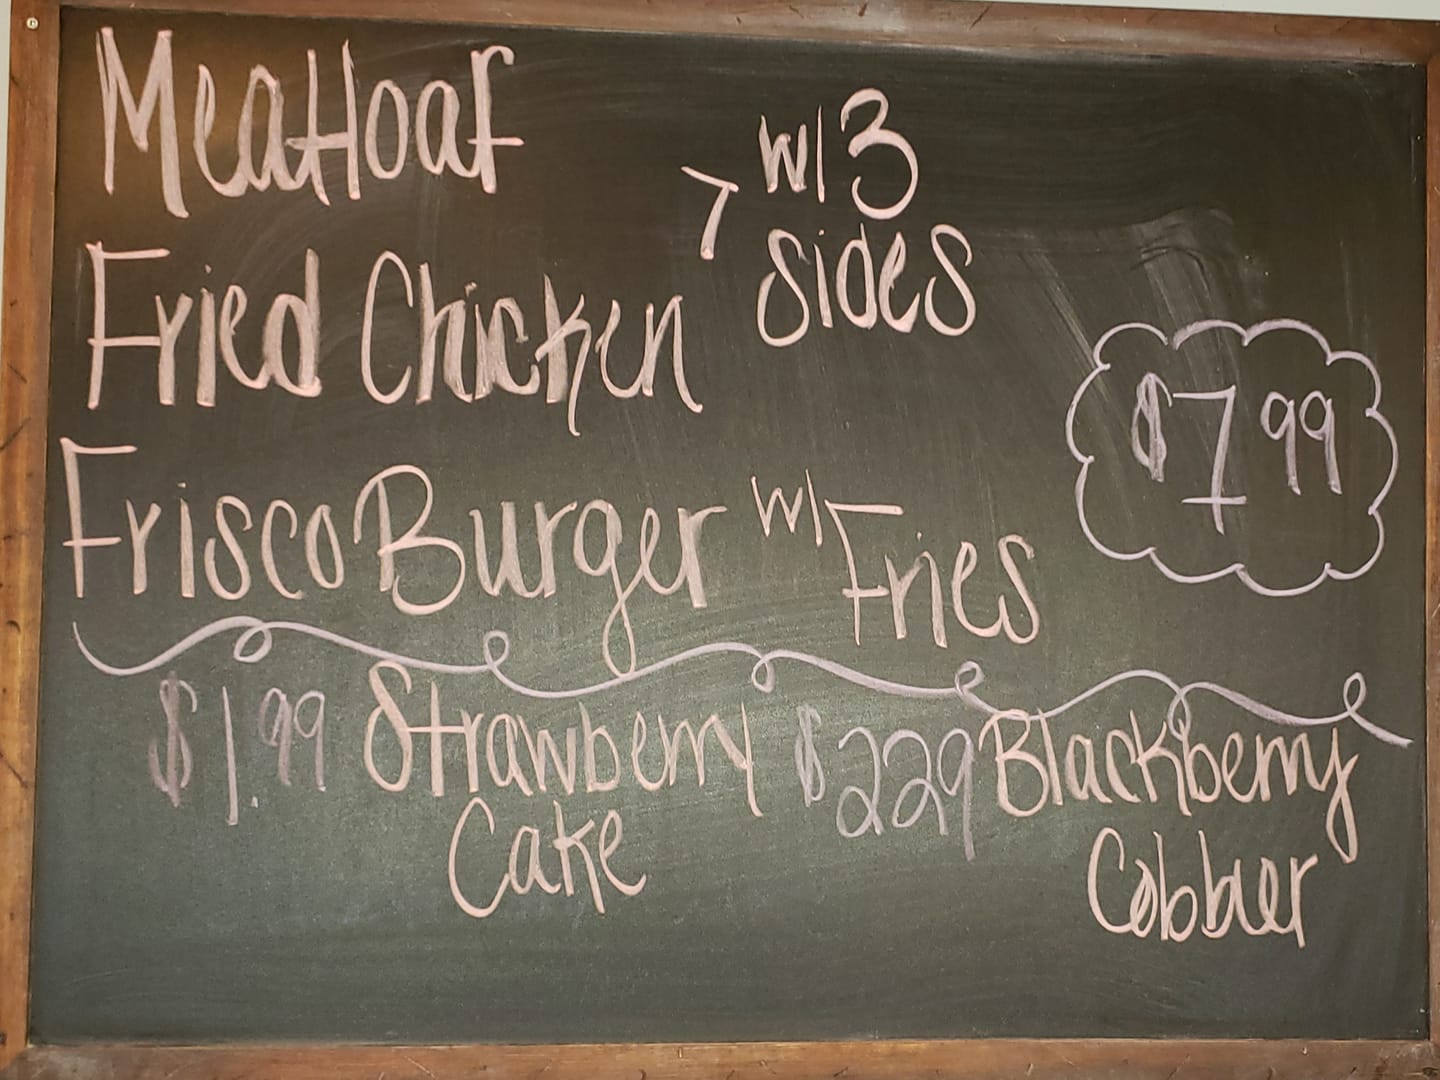 Meatloaf
Fried Chicken
> w/ 3
sides
Frisco Burger w/ Fries
$7.99
$1.99 Strawberry
Cake
$229 Blackberry
Cobbler